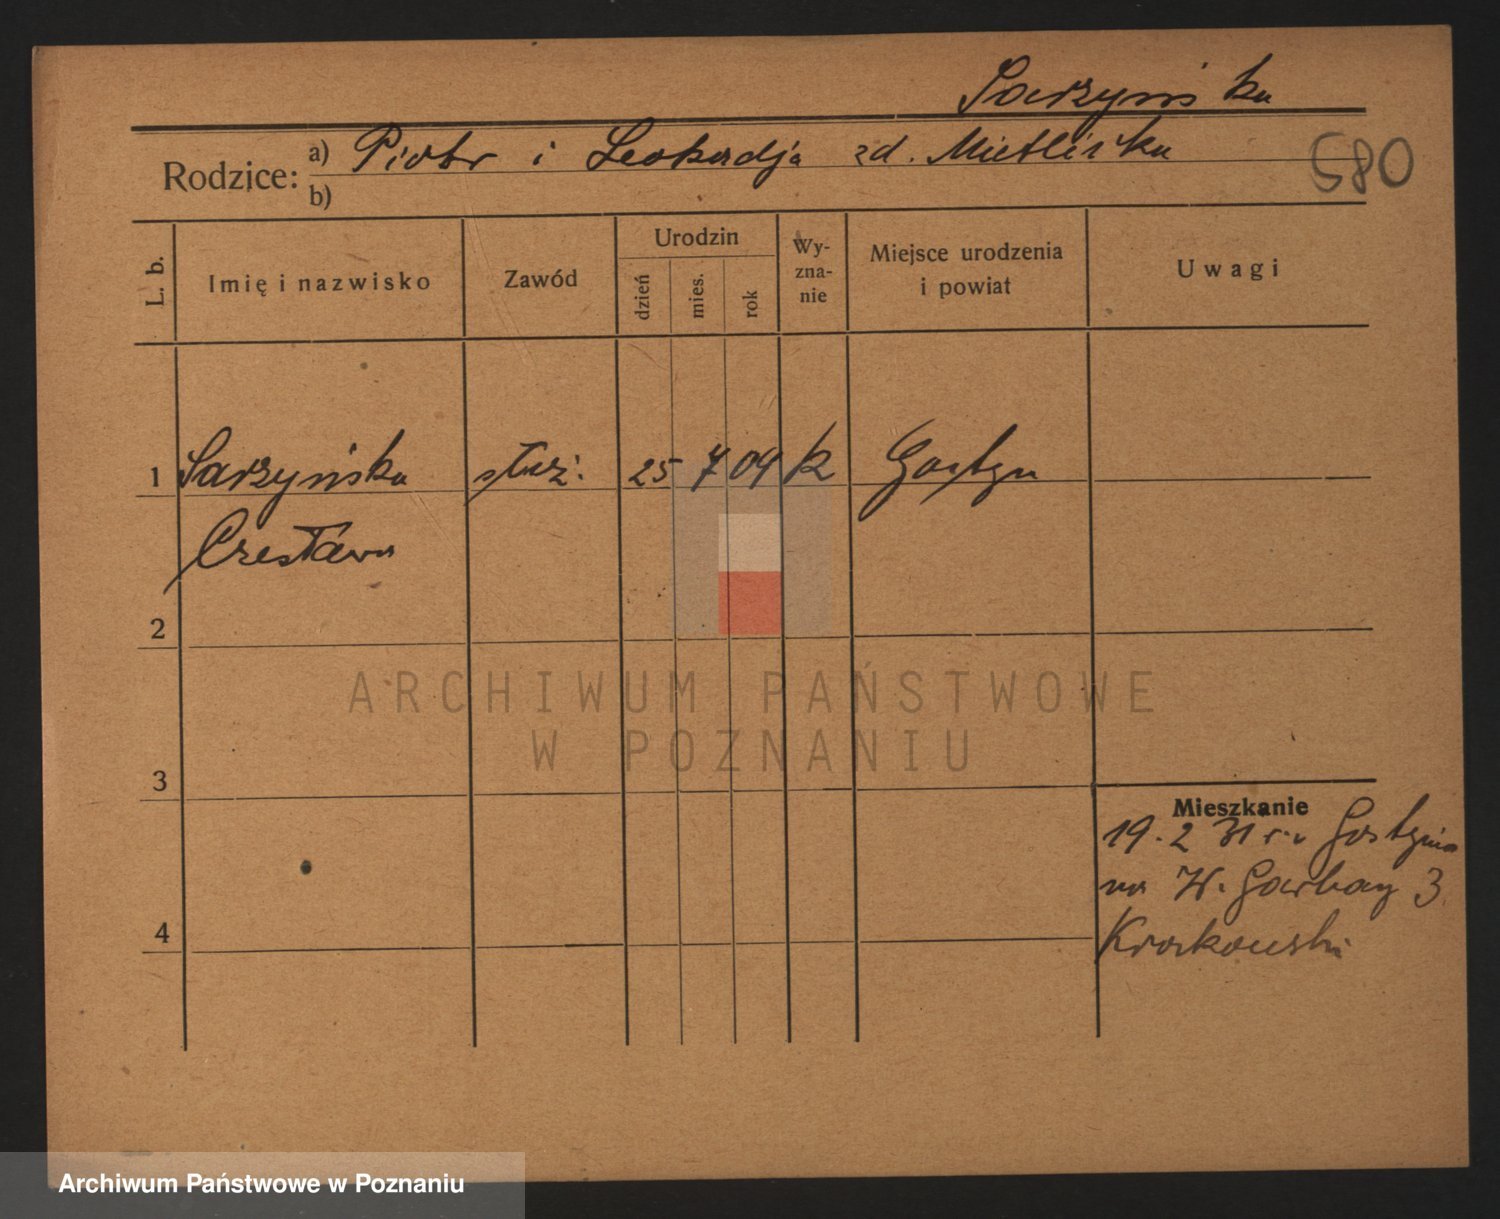 Sarzyńska
Rodzice: a) Piotr i Leokadja zd. Mietlińska
580
b)
L. b.
Imię i nazwisko
Zawód
Urodzin
dzień
mies.
rok
Wy-
zna-
nie
Miejsce urodzenia
i powiat
Uwagi
1 Sarzyńska służ. 25 7 09 k Gostyn
Czesława
2
ARCHIWUM PAŃSTWOWE
W POZNANIU
3
Mieszkanie
19. 2 31 r. z Gostynia
na W. Garbary 3
4
Archiwum Państwowe w Poznaniu